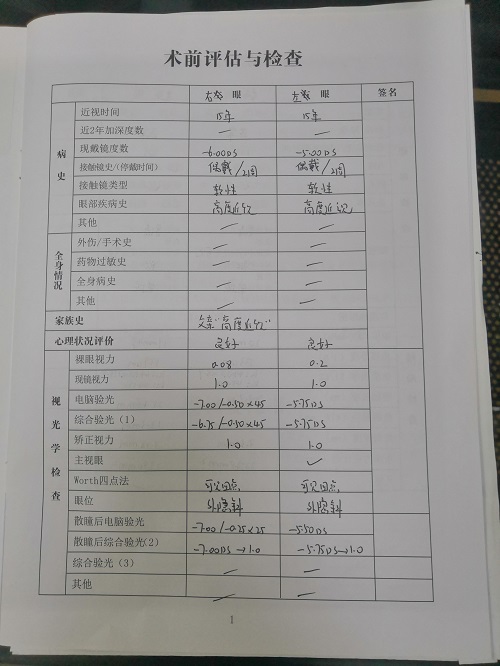 术前评估与检查
右 眼 左 眼 签名
病史
近视时间 15年 15年
近2年加深度数 — —
现戴镜度数 -6.00DS -5.00DS
接触镜史/(停戴时间) 偶戴/2周 偶戴/2周
接触镜类型 软性 软性
眼部疾病史 高度近视 高度近视
其他 — —
全身情况
外伤/手术史 — —
药物过敏史 — —
全身病史 — —
其他 — —
家族史 父亲"高度近视"
心理状况评价 良好 良好
视光学检查
裸眼视力 0.08 0.2
现镜视力 1.0 1.0
电脑验光 -7.00/-0.50×45 -5.75DS
综合验光（1） -6.75/-0.50×45 -5.75DS
矫正视力 1.0 1.0
主视眼 ✓
Worth四点法 可见四点 可见四点
眼位 外隐斜 外隐斜
散瞳后电脑验光 -7.00/-0.25×25 -5.50DS
散瞳后综合验光(2) -7.00DS→1.0 -5.75DS→1.0
综合验光（3） — —
其他 — —
1